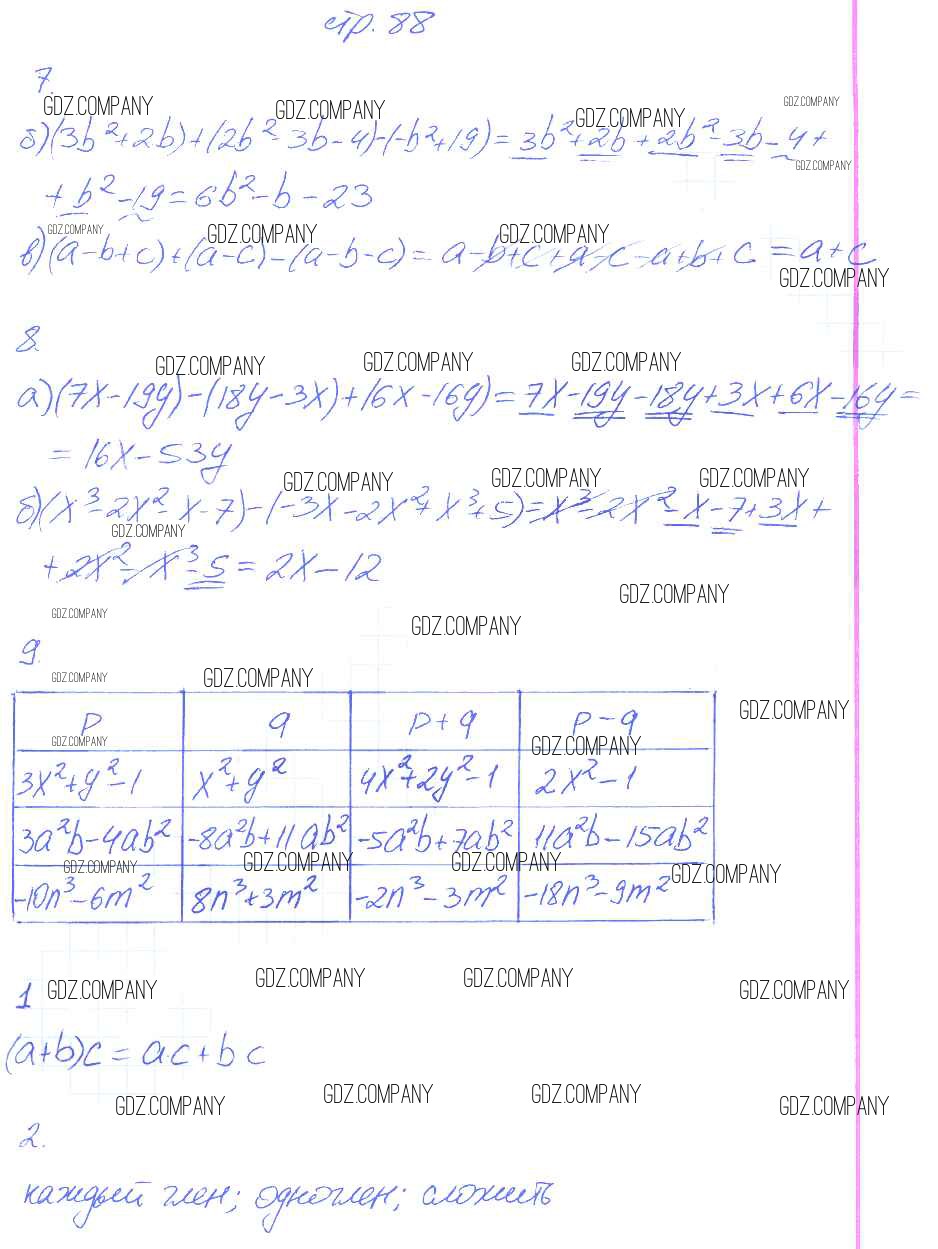 стр. 88
7.
GDZ.COMPANY GDZ.COMPANY GDZ.COMPANY GDZ.COMPANY
б) (3b²+2b)+(2b²-3b-4)-(-b²+19)= 3b²+2b+2b²-3b-4+
GDZ.COMPANY
+b²-19=6b²-b-23
GDZ.COMPANY GDZ.COMPANY GDZ.COMPANY
в) (a-b+c)+(a-c)-(a-b-c)= a-b+c+a-c-a+b+c = a+c
GDZ.COMPANY
8.
GDZ.COMPANY GDZ.COMPANY GDZ.COMPANY
а) (7x-19y)-(18y-3x)+(6x-16y)=7x-19y-18y+3x+6x-16y=
= 16x-53y
GDZ.COMPANY GDZ.COMPANY GDZ.COMPANY
б) (x³-2x²-x-7)-(-3x-2x²+x³+5)=x³-2x²-x-7+3x+
GDZ.COMPANY
+2x²-x³-5=2x-12
GDZ.COMPANY
GDZ.COMPANY GDZ.COMPANY
9.
GDZ.COMPANY GDZ.COMPANY
GDZ.COMPANY
p q p+q p-q
GDZ.COMPANY GDZ.COMPANY
3x²+y²-1 x²+y² 4x²+2y²-1 2x²-1
3a²b-4ab² -8a²b+11ab² -5a²b+7ab² 11a²b-15ab²
GDZ.COMPANY GDZ.COMPANY GDZ.COMPANY GDZ.COMPANY
-10n³-6m² 8n³+3m² -2n³-3m² -18n³-9m²
GDZ.COMPANY GDZ.COMPANY
1 GDZ.COMPANY GDZ.COMPANY
(a+b)c=ac+bc
GDZ.COMPANY GDZ.COMPANY GDZ.COMPANY GDZ.COMPANY
2.
каждый член; одночлен; сложить